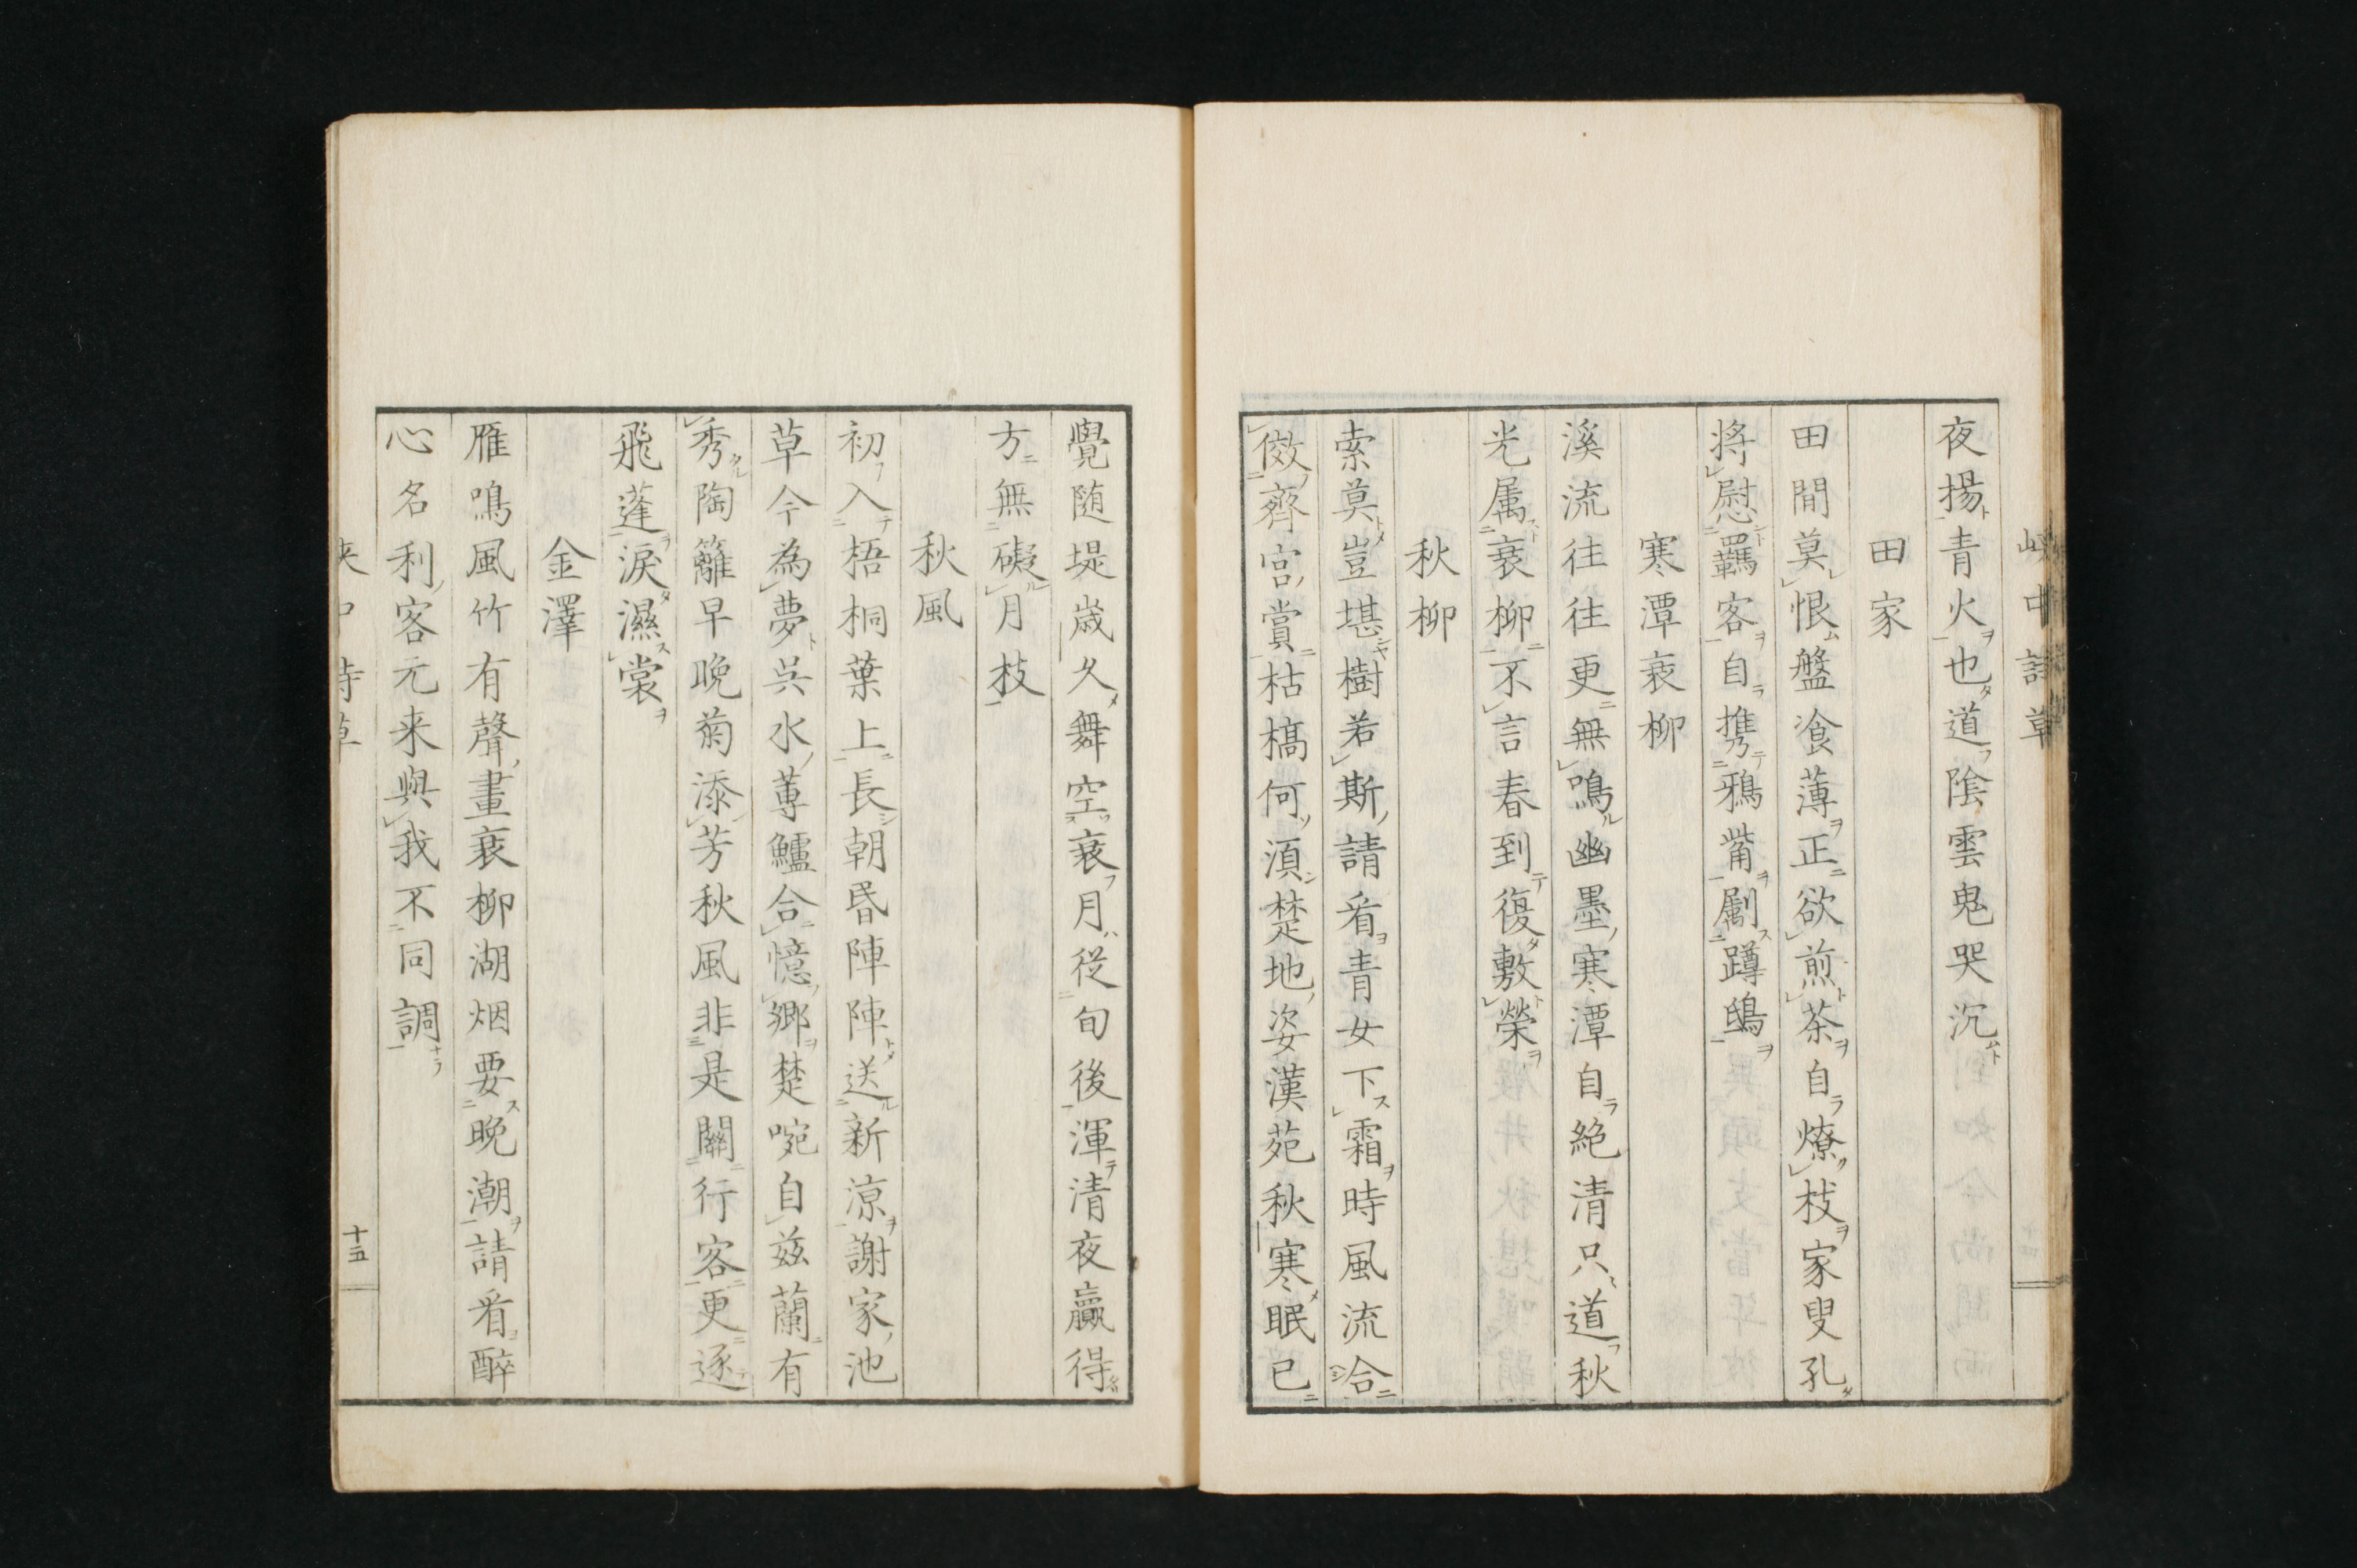 峡中詩草
夜揚青火也道陰雲鬼哭沉
田家
田間莫恨盤飡薄正欲煎茶自燎枝家叟孔
将慰羈客自携鴉觜劚蹲鴟
寒潭衰柳
溪流往往更無鳴幽墨寒潭自絶清只道秋
光属衰柳不言春到復敷榮
秋柳
索莫豈堪樹若斯請看青女下霜時風流洽
傚齊宮賞枯槁何須楚地姿漢苑秋寒眠已
覺随堤歳久舞空衰月従旬後渾清夜贏得
方無礙月枝
秋風
初入梧桐葉上長朝昏陣陣送新涼謝家池
草今為夢呉水蓴鱸合憶郷楚畹自茲蘭有
秀陶籬早晩菊添芳秋風非是關行客更逐
飛蓬淚濕裳
金澤
雁鳴風竹有聲畫衰柳湖烟要晩潮請看醉
心名利客元来與我不同調
峡中詩草
十五